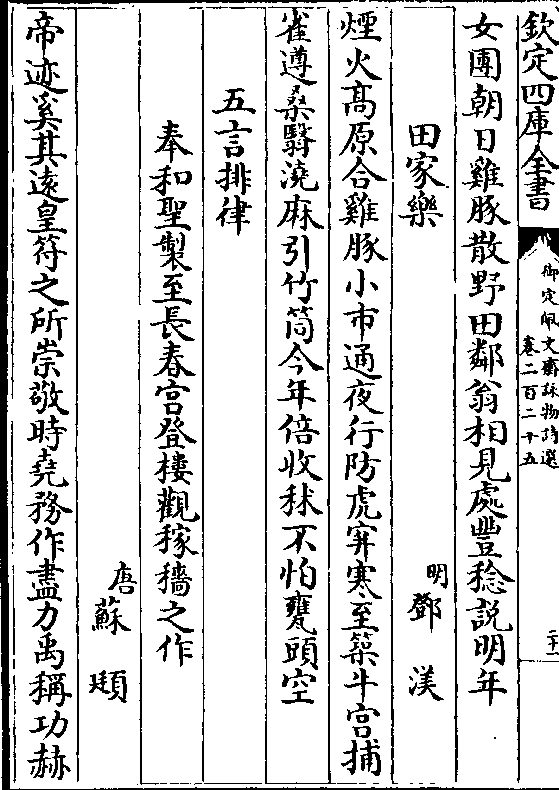 欽定四庫全書
御定佩文齋詠物詩選
卷二百二十五
二十一
女團朝日雞豚散野田鄰翁相見處豐稔説明年
田家樂
明鄧渼
煙火髙原合雞豚小市通夜行防虎穽寒至築牛宫捕
雀遵桑翳澆麻引竹筒今年倍收秫不怕甕頭空
五言排律
奉和聖製至長春宫登樓觀稼穡之作
唐蘇頲
帝迹奚其遠皇符之所崇敬時堯務作盡力禹稱功赫